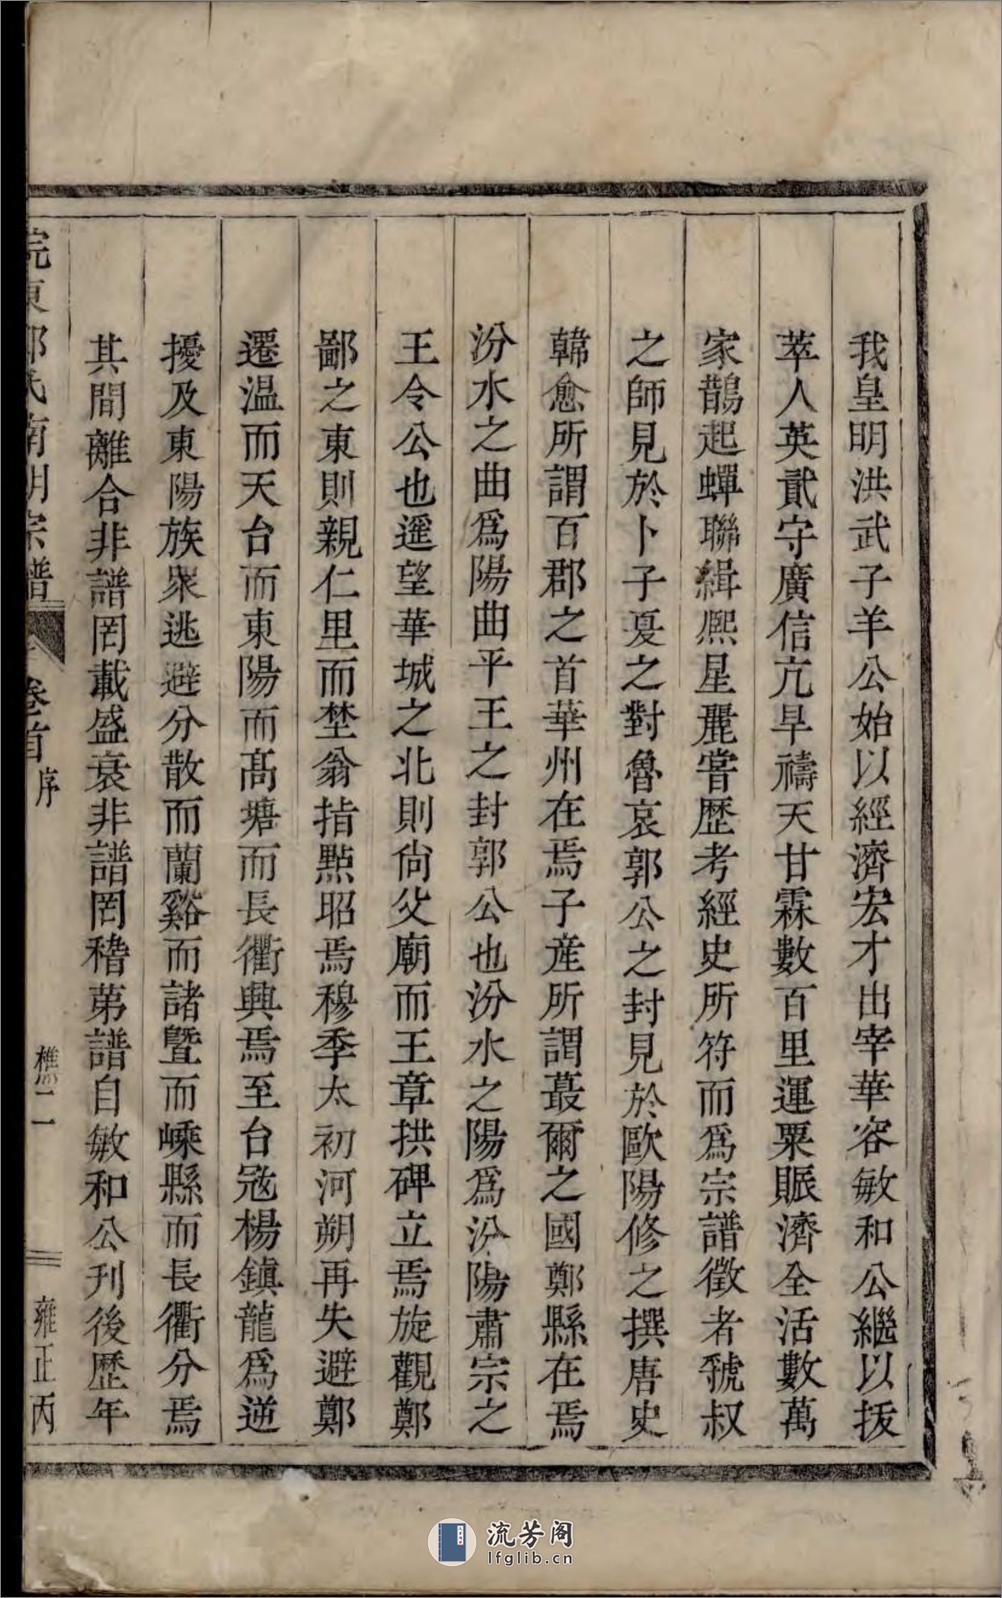 我皇明洪武子羊公始以經濟宏才出宰華容敏和公繼以拔
萃人英貳守廣信亢旱禱天甘霖數百里運粟賑濟全活數萬
家鵲起蟬聯緝熈星麗嘗歷考經史所符而爲宗譜徵者虢叔
之師見於卜子夏之對魯哀郭公之封見於歐陽修之撰唐史
韓愈所謂百郡之首華州在焉子產所謂蕞爾之國鄭縣在焉
汾水之曲爲陽曲平王之封郭公也汾水之陽爲汾陽肅宗之
王令公也遥望華城之北則尚父廟而王章拱碑立焉旋觀鄭
鄙之東則親仁里而埜翁指㸃昭焉穆季太初河朔再失避鄭
遷温而天台而東陽而髙塘而長衢興焉至台寇楊鎮龍爲逆
擾及東陽族衆逃避分散而蘭谿而諸暨而嵊縣而長衢分焉
其間離合非譜罔載盛衰非譜罔稽第譜自敏和公刋後歷年
東郭氏南明宗譜 卷首 序 樵二 雍正丙
流芳阁
lfglib.cn